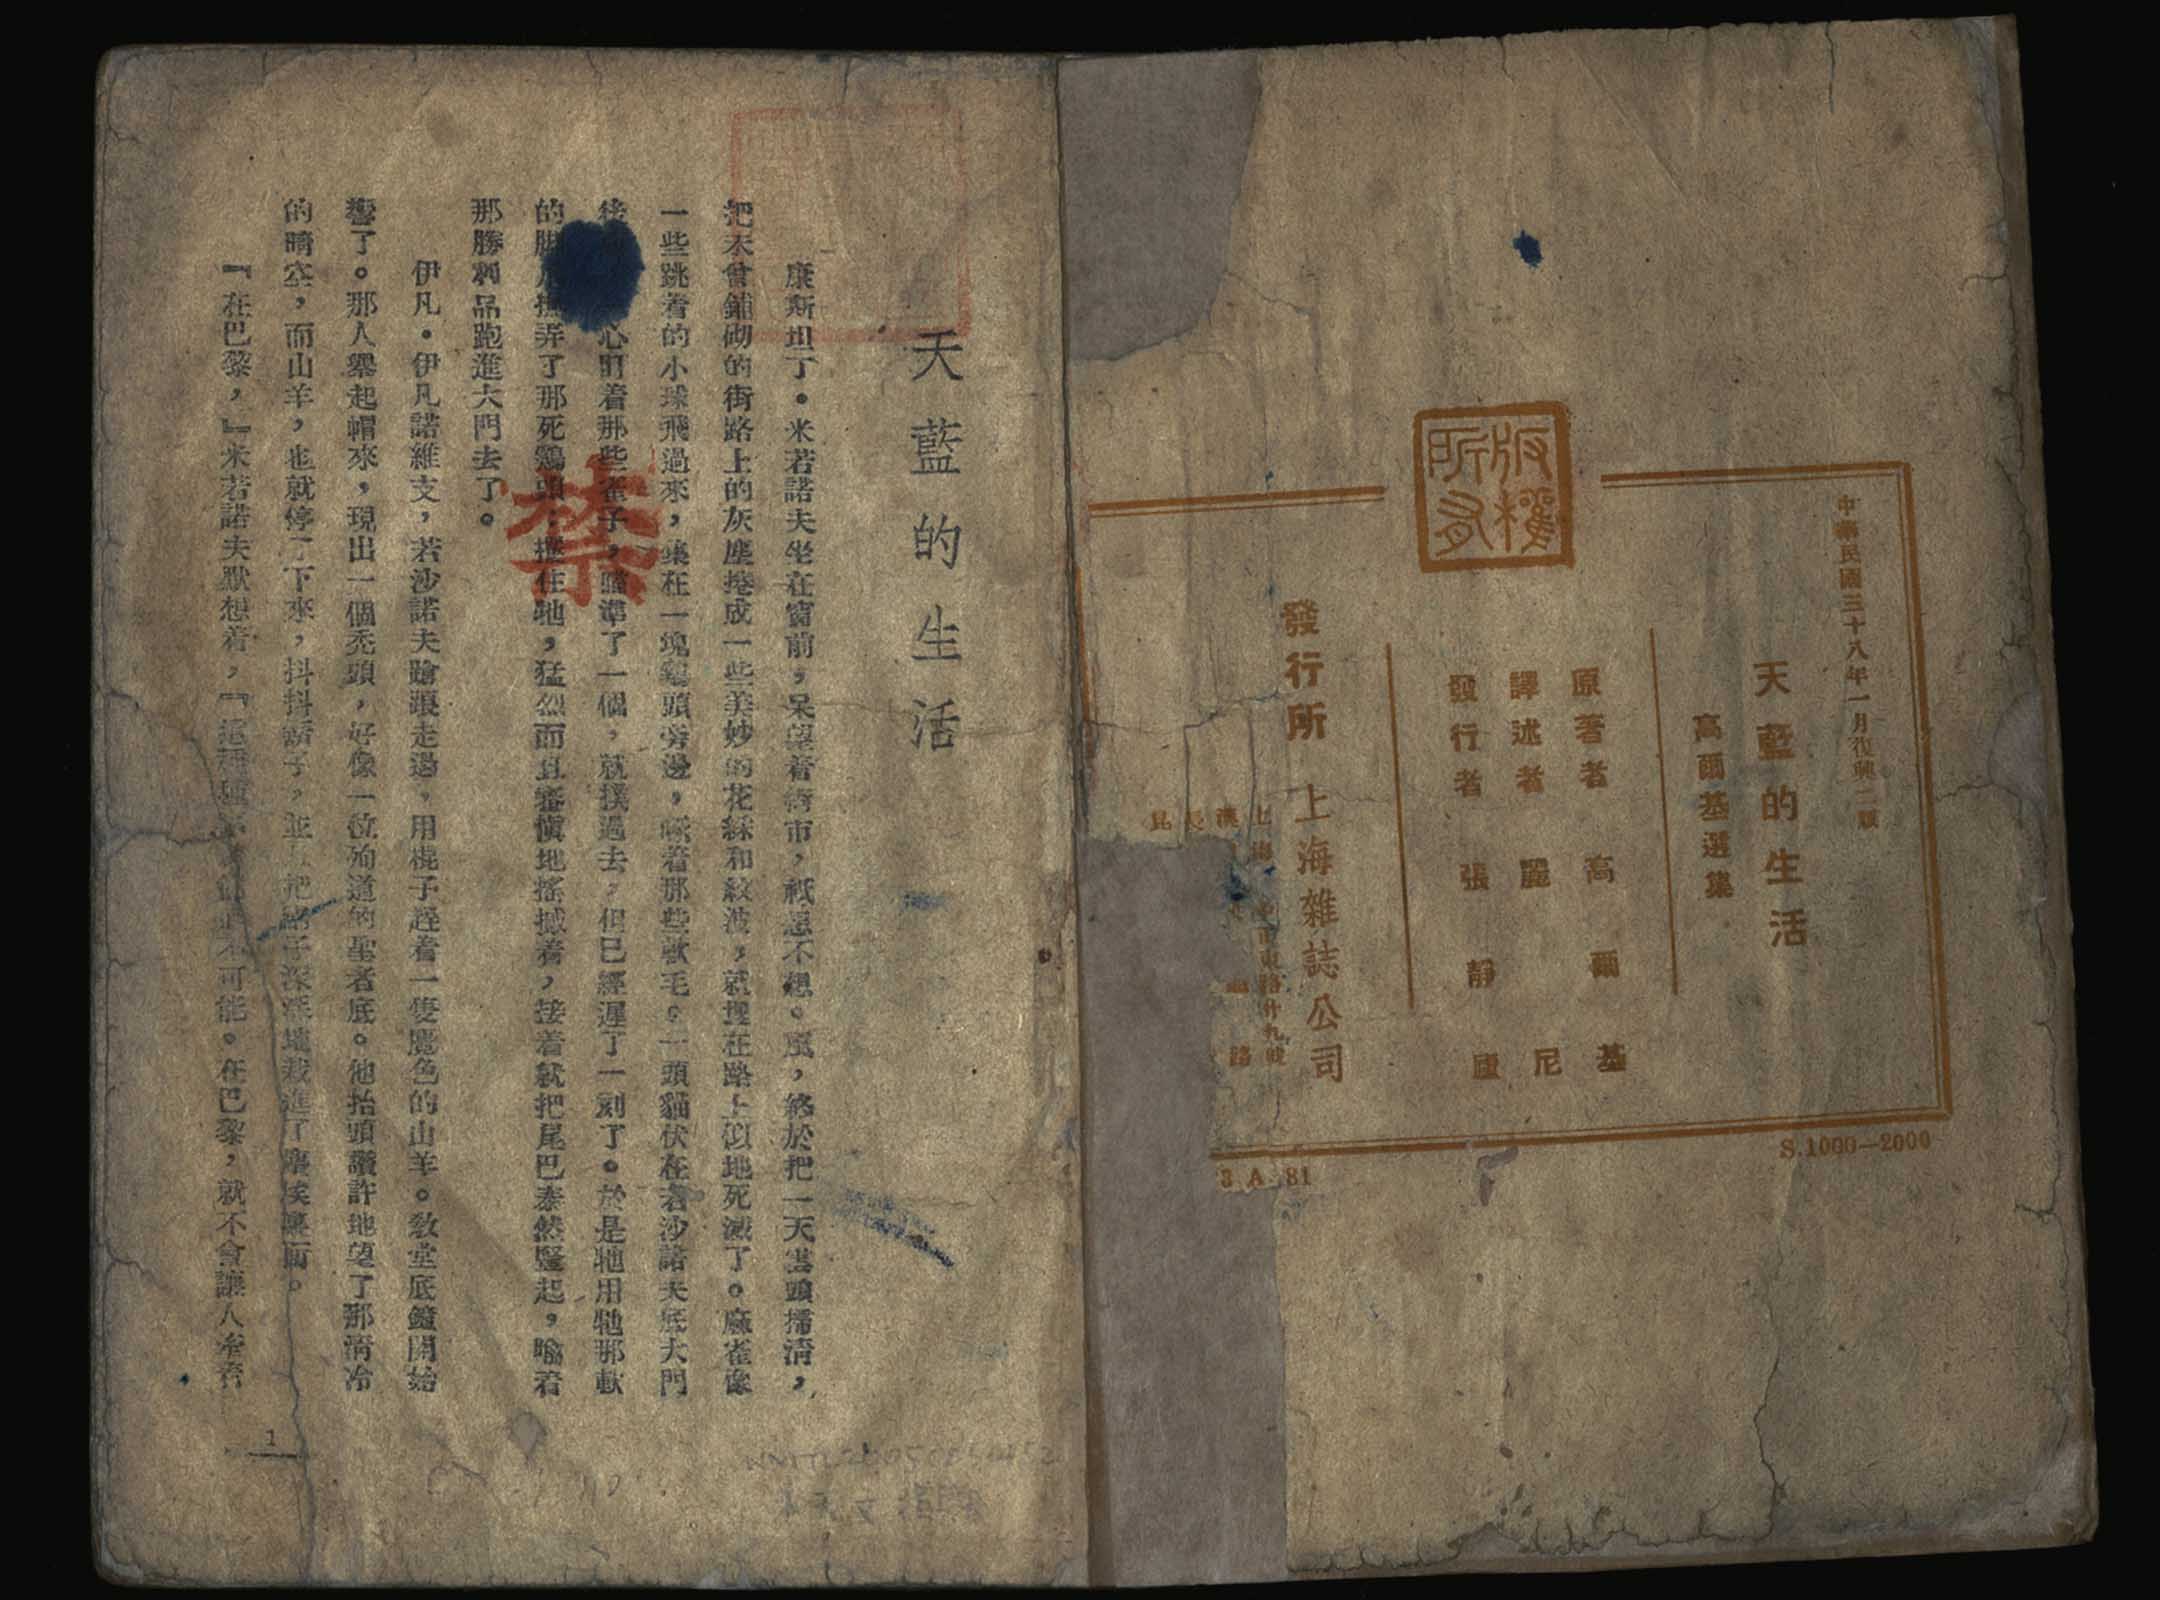 版權所有
中華民國三十八年一月復興二版
天藍的生活
高爾基選集
原著者 高爾基
譯述者 麗尼
發行者 張靜廬
發行所 上海雜誌公司
S.1000—2000
3 A 81
天藍的生活
康斯坦丁。米若諾夫坐在窗前，呆望着街市，祇想不想。風，終於把一天雲頭掃清，
把未曾鋪砌的街路上的灰塵捲成一些美妙的花綵和紋波，就埋在路上似地死滅了。麻雀像
一些跳着的小球飛過來，集在一塊雞頭旁邊，啄着那些軟毛。一頭貓伏在若沙諾夫底大門
後 心盯着那些雀子，瞄準了一個，就撲過去，但已經遲了一刻了。於是牠用牠那軟
的腳 撫弄了那死雞頭，攫住牠，猛烈而且審慎地搖撼着，接着就把尾巴泰然豎起，啣着
那勝利品跑進大門去了。
伊凡。伊凡諾維支，若沙諾夫蹌踉走過，用棍子趕着一隻麂色的山羊。教堂底鐘開始
響了。那人舉起帽來，現出一個禿頭，好像一位殉道的聖者底。他抬頭讚許地望了那清冷
的晴空，而山羊，也就停了下來，抖抖鬍子，並且把蹄子深深地栽進了塵埃裏面。
『在巴黎，』米若諾夫默想着，『這種 不可能。在巴黎，就不會讓人牽着
禁
1